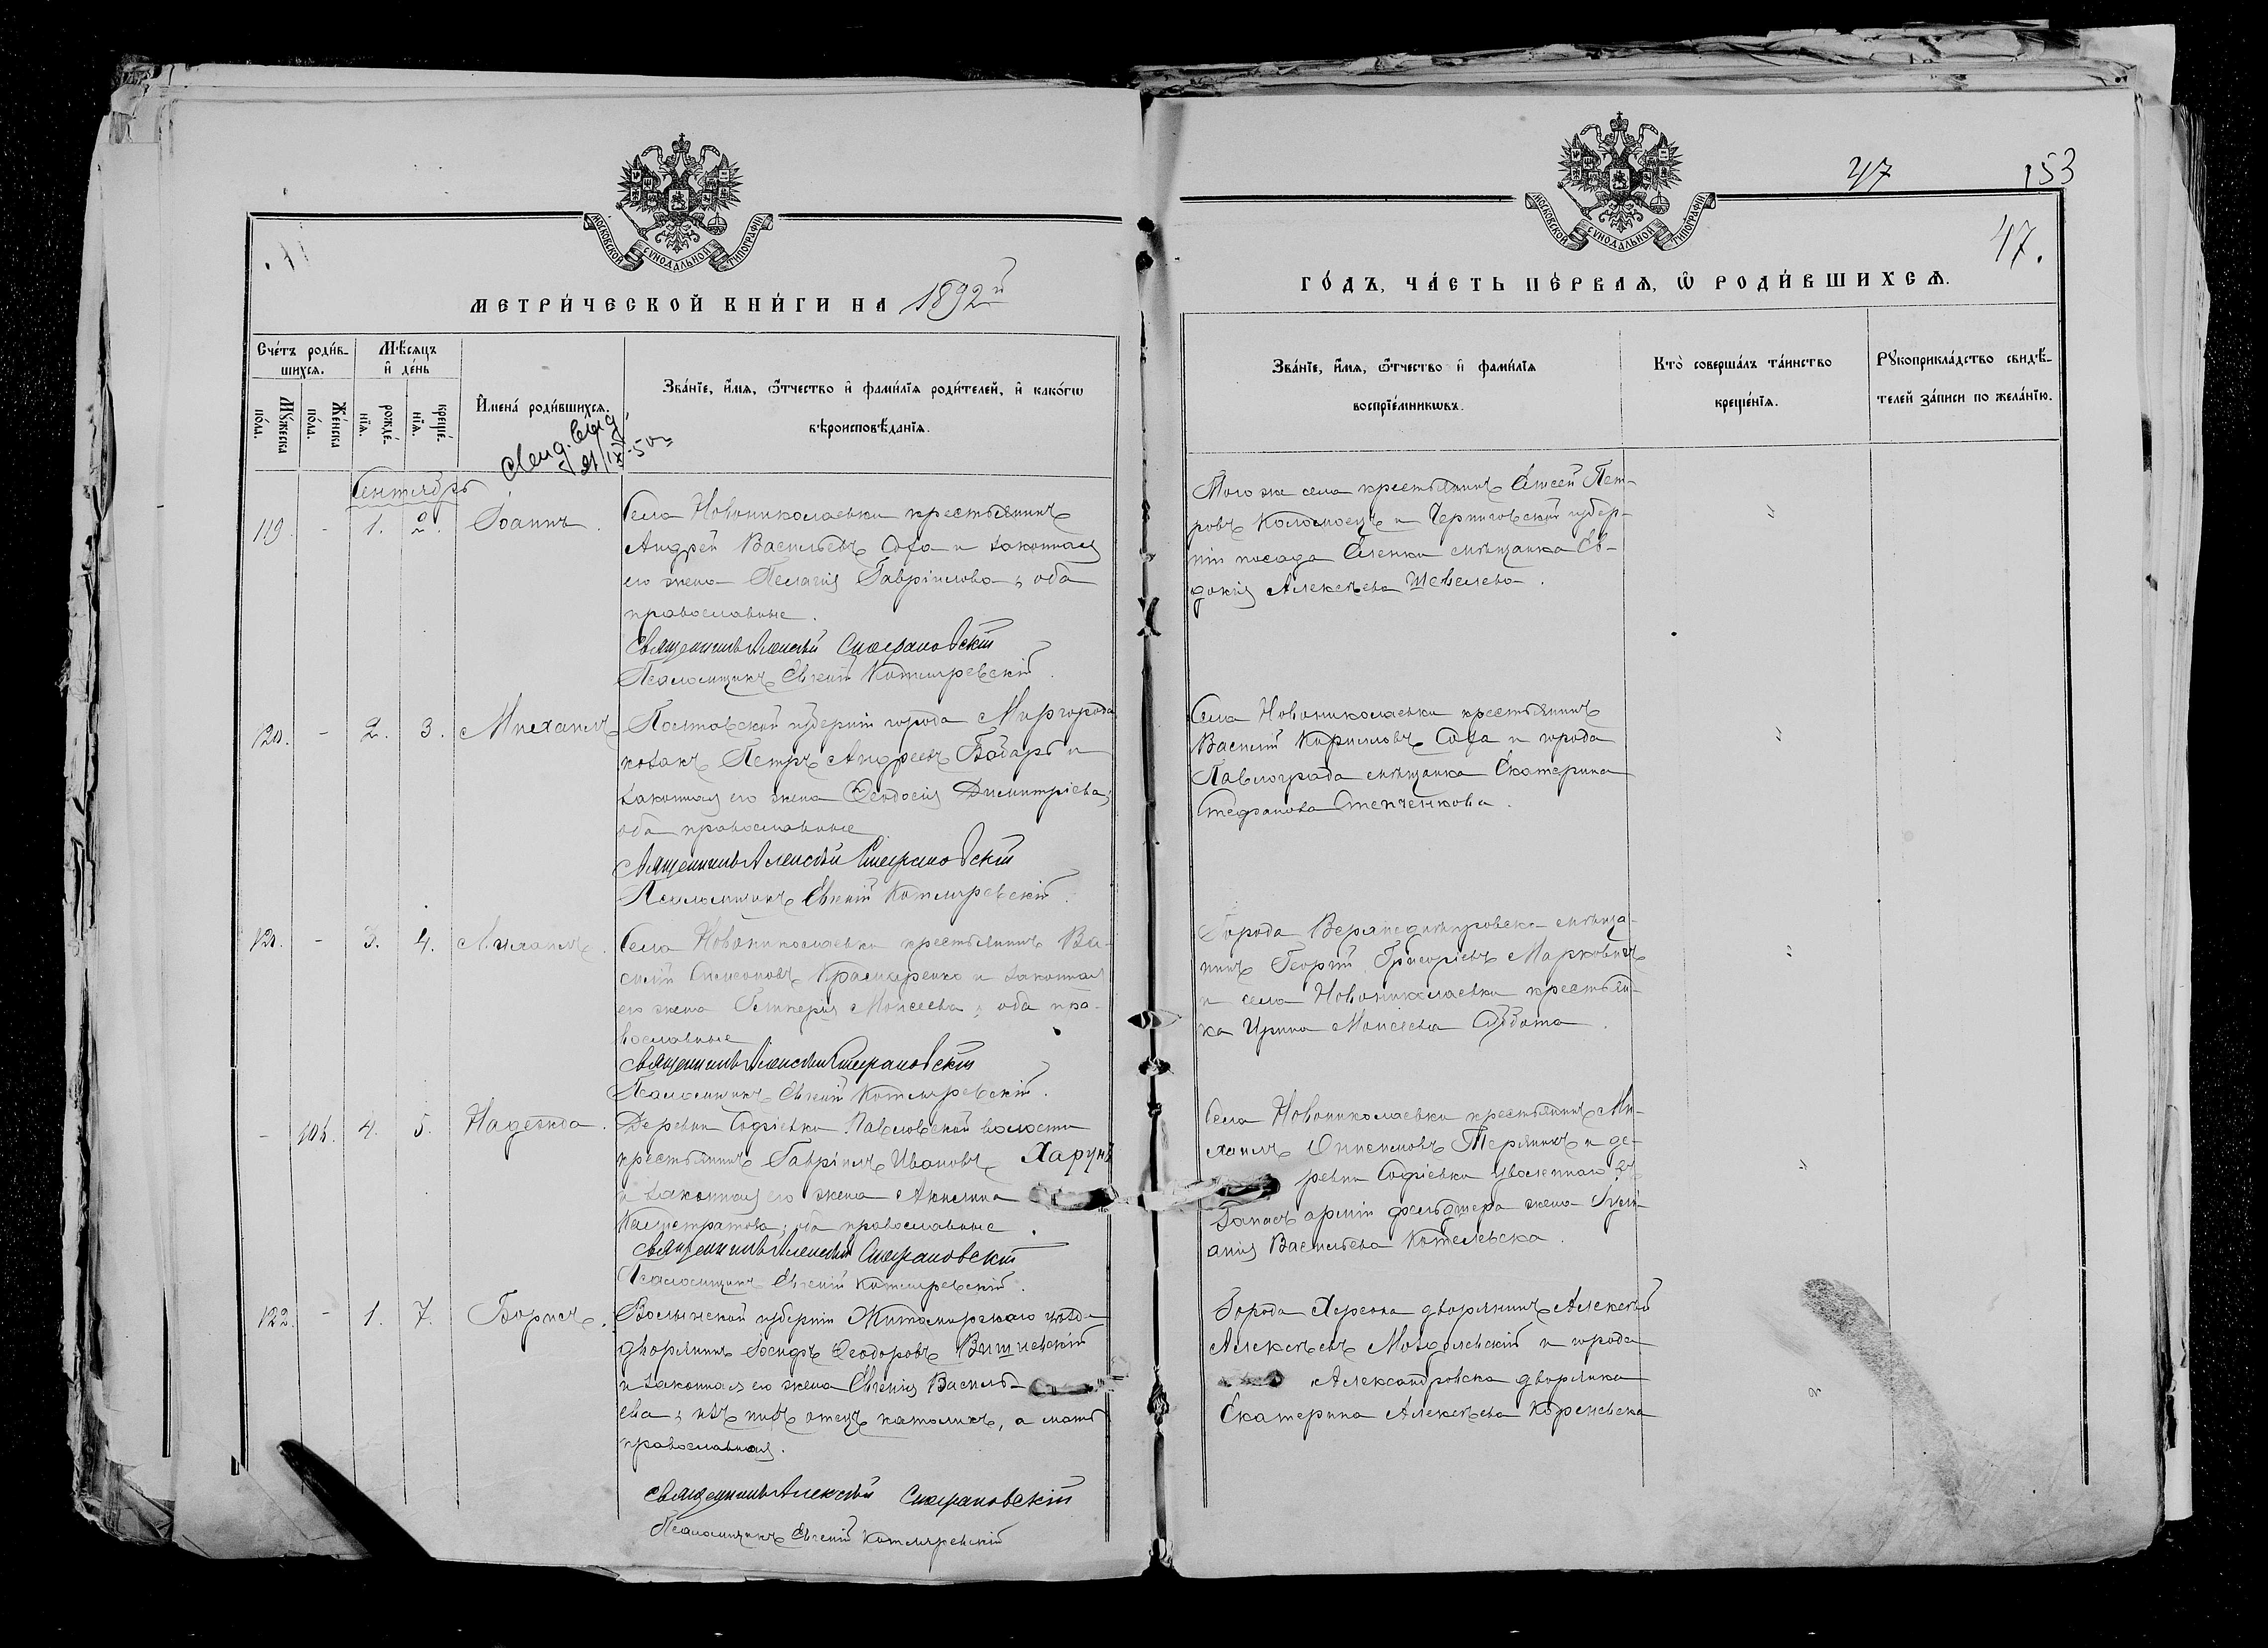 МОСКОВСКОЙ СѴНОДАЛЬНОЙ ТИПОГРАФІИ
МЕТРИ́ЧЕСКОЙ КНИ́ГИ НА 1892й
Сче́тъ роди́в-
шихся.
Му́жеска
по́ла.
Же́нска
по́ла.
Мѣ́сяцъ
и҆ де́нь
рожде́-
нїя.
креще́-
нїя.
И҆мена̀ роди́вшихся.
Зва́нїе, и҆́мя, ѻ҆́тчество и҆ фами́лїя роди́телей, и҆ како́гѡ
вѣроисповѣ́данїя.
21/IX-50
Сентябрь
119. - 1. 2. Іоаннъ.
Села Новониколаевки крестьянинъ
Андрей Васильевъ Сова и законная
его жена Пелагія Гавріилова; оба
православные.
Священникъ Алексѣй Стефановскій
Псаломщикъ Евгеній Котляревскій.
120. - 2. 3. Михаилъ
Полтавской губерніи города Миргорода
козакъ Петръ Андреевъ Бабарь и
законная его жена Ѳеодосія Димитріева;
оба православные.
Священникъ Алексѣй Стефановскій
Псаломщикъ Евгеній Котляревскій.
121. - 3. 4. Михаилъ.
Села Новониколаевки крестьянинъ Ва-
силій Симеоновъ Крамаренко и законная
его жена Гликерія Моисеева; оба пра-
вославные
Священникъ Алексѣй Стефановскій
Псаломщикъ Евгеній Котляревскій.
- 4. 5. Надежда.
Деревни Софіевки Павловской волости
крестьянинъ Гавріилъ Ивановъ Харунъ
и законная его жена Акилина
Калистратова; оба православные.
Священникъ Алексѣй Стефановскій
Псаломщикъ Евгеній Котляревскій.
122. - 1. 7. Борисъ.
Волынской губерніи Житомирскаго уѣзда
дворянинъ Іосифъ Ѳеодоровъ Вишневскій
и законная его жена Евгенія Василь-
ева; изъ нихъ отецъ католикъ, а мать
православная.
Священникъ Алексѣй Стефановскій
Псаломщикъ Евгеній Котляревскій
47 153
47.
МОСКОВСКОЙ СѴНОДАЛЬНОЙ ТИПОГРАФІИ
ГО́ДЪ, ЧА́СТЬ ПЕ́РВАЯ, Ѽ РОДИ́ВШИХСЯ.
Зва́нїе, и҆́мя, ѻ҆́тчество и҆ фами́лїя
воспрїе́мникѡвъ.
Кто̀ соверша́лъ та́инство
креще́нїя.
Рꙋкоприкла́дство свидѣ́-
телей за́писи по жела́нїю.
Того же села крестьянинъ Елисей Пет-
ровъ Коломоецъ и Черниговской губер-
ніи посада Еленки мѣщанка Ев-
докія Алексѣева Шевелева.
Села Новониколаевки крестьянинъ
Василій Кирилловъ Сова и города
Павлограда мѣщанка Екатерина
Стефанова Степченкова.
Города Верхнеднѣпровска мѣща-
нинъ Георгій Григорьевъ Марковичъ
и села Новониколаевки крестьян-
ка Ирина Моисеева Субота.
Села Новониколаевки крестьянинъ Ми-
хаилъ Онисимовъ Теряникъ и де-
ревни Софіевки уволеннаго въ
запасъ арміи фельдшера жена Іули-
анія Васильева Котелевска.
Города Херсона дворянинъ Алексѣй
Алексѣевъ Мозголевскій и города
Александровска дворянка
Екатерина Алексѣева Кореневска